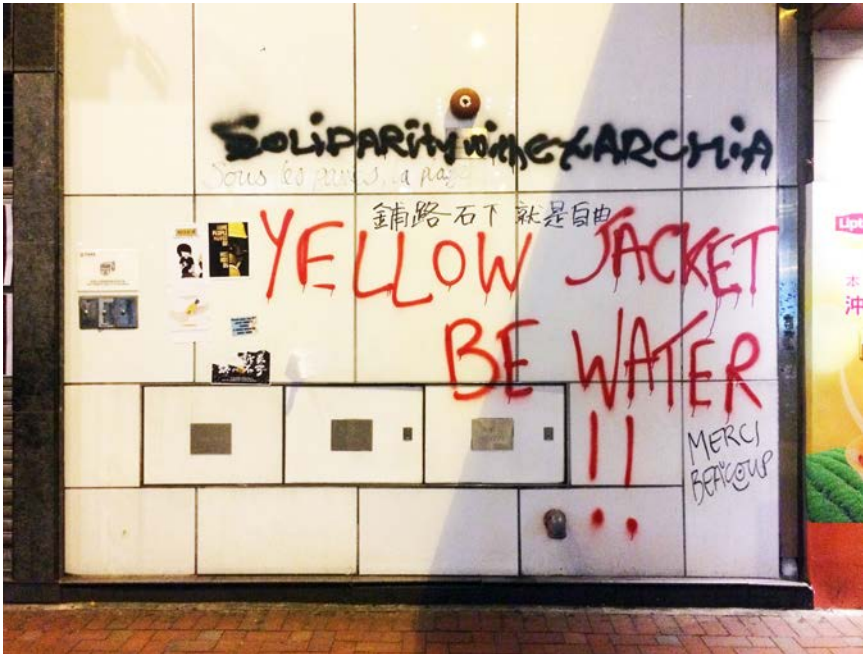 SOLIDARITY with EXARCHIA
Sous les pavés, la plage
鋪路石下 就是自由
YELLOW JACKET
BE WATER
!!
MERCI
BEAUCOUP
Lipt
本
沖